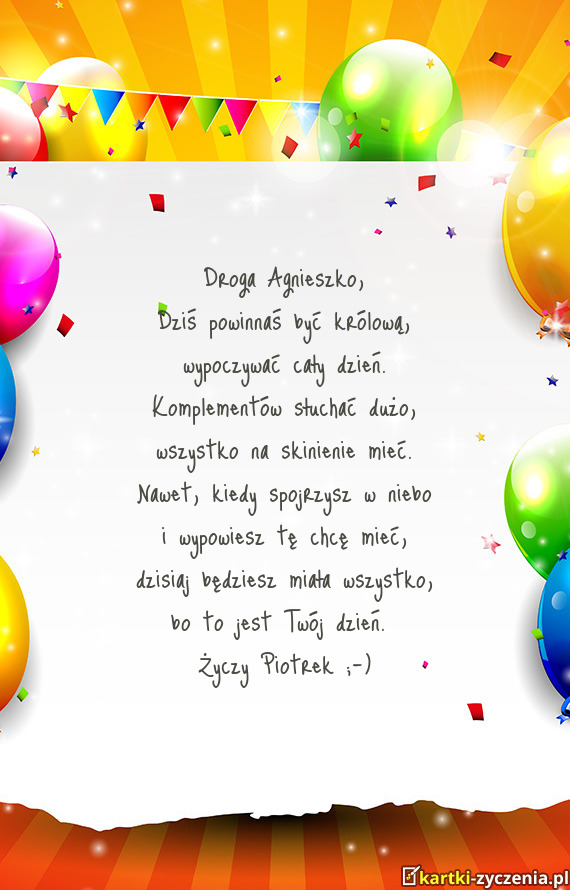 Droga Agnieszko,
Dziś powinnaś być królową,
wypoczywać cały dzień.
Komplementów słuchać dużo,
wszystko na skinienie mieć.
Nawet, kiedy spojrzysz w niebo
i wypowiesz tę chcę mieć,
dzisiaj będziesz miała wszystko,
bo to jest Twój dzień.
Życzy Piotrek ;-)
kartki-zyczenia.pl